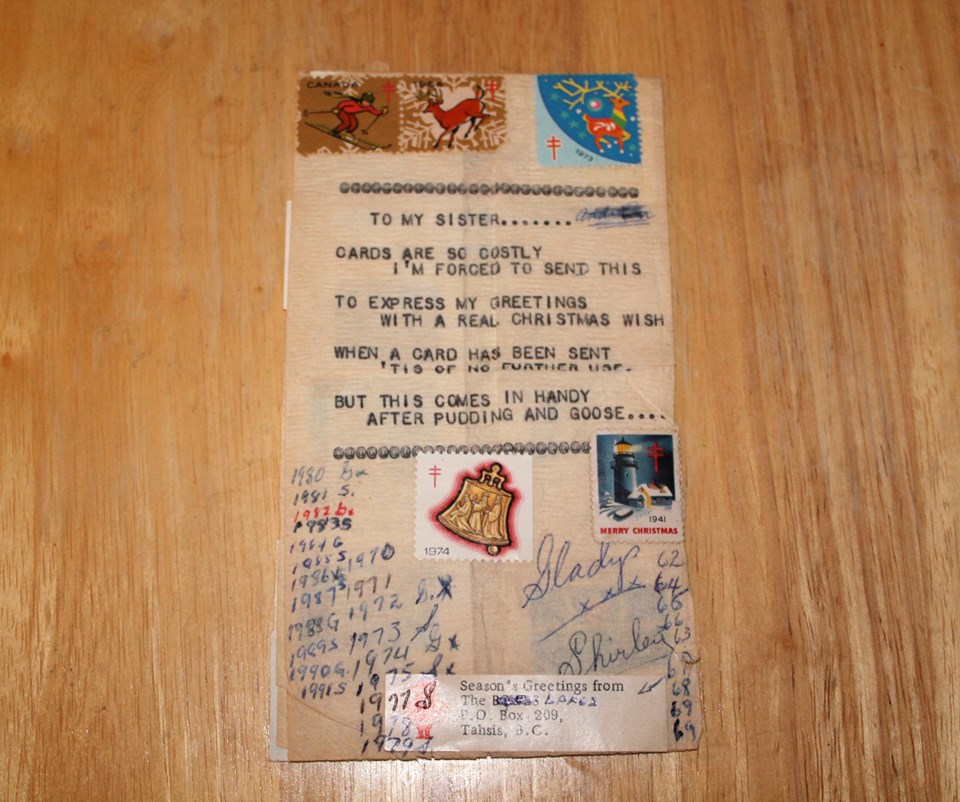 CANADA
1973
TO MY SISTER.......
CARDS ARE SO COSTLY
I'M FORCED TO SENT THIS
TO EXPRESS MY GREETINGS
WITH A REAL CHRISTMAS WISH
WHEN A CARD HAS BEEN SENT
'TIS OF NO FURTHER USE.
BUT THIS COMES IN HANDY
AFTER PUDDING AND GOOSE....
1974
1941
MERRY CHRISTMAS
Gladys
x x x
Shirley
62
64
66
66
63
67
68
69
69
1980 G
1981 S.
1982 G
1983 S
1984 G
1985 S 1970
1986 1971
1987 S 1972 S.
1988 G 1973 S
1989 S 1974 G
1990 G 1975 S
1991 S 1977 S
1978
1979 S
Season's Greetings from
The
P.O. Box 209,
Tahsis, B.C.